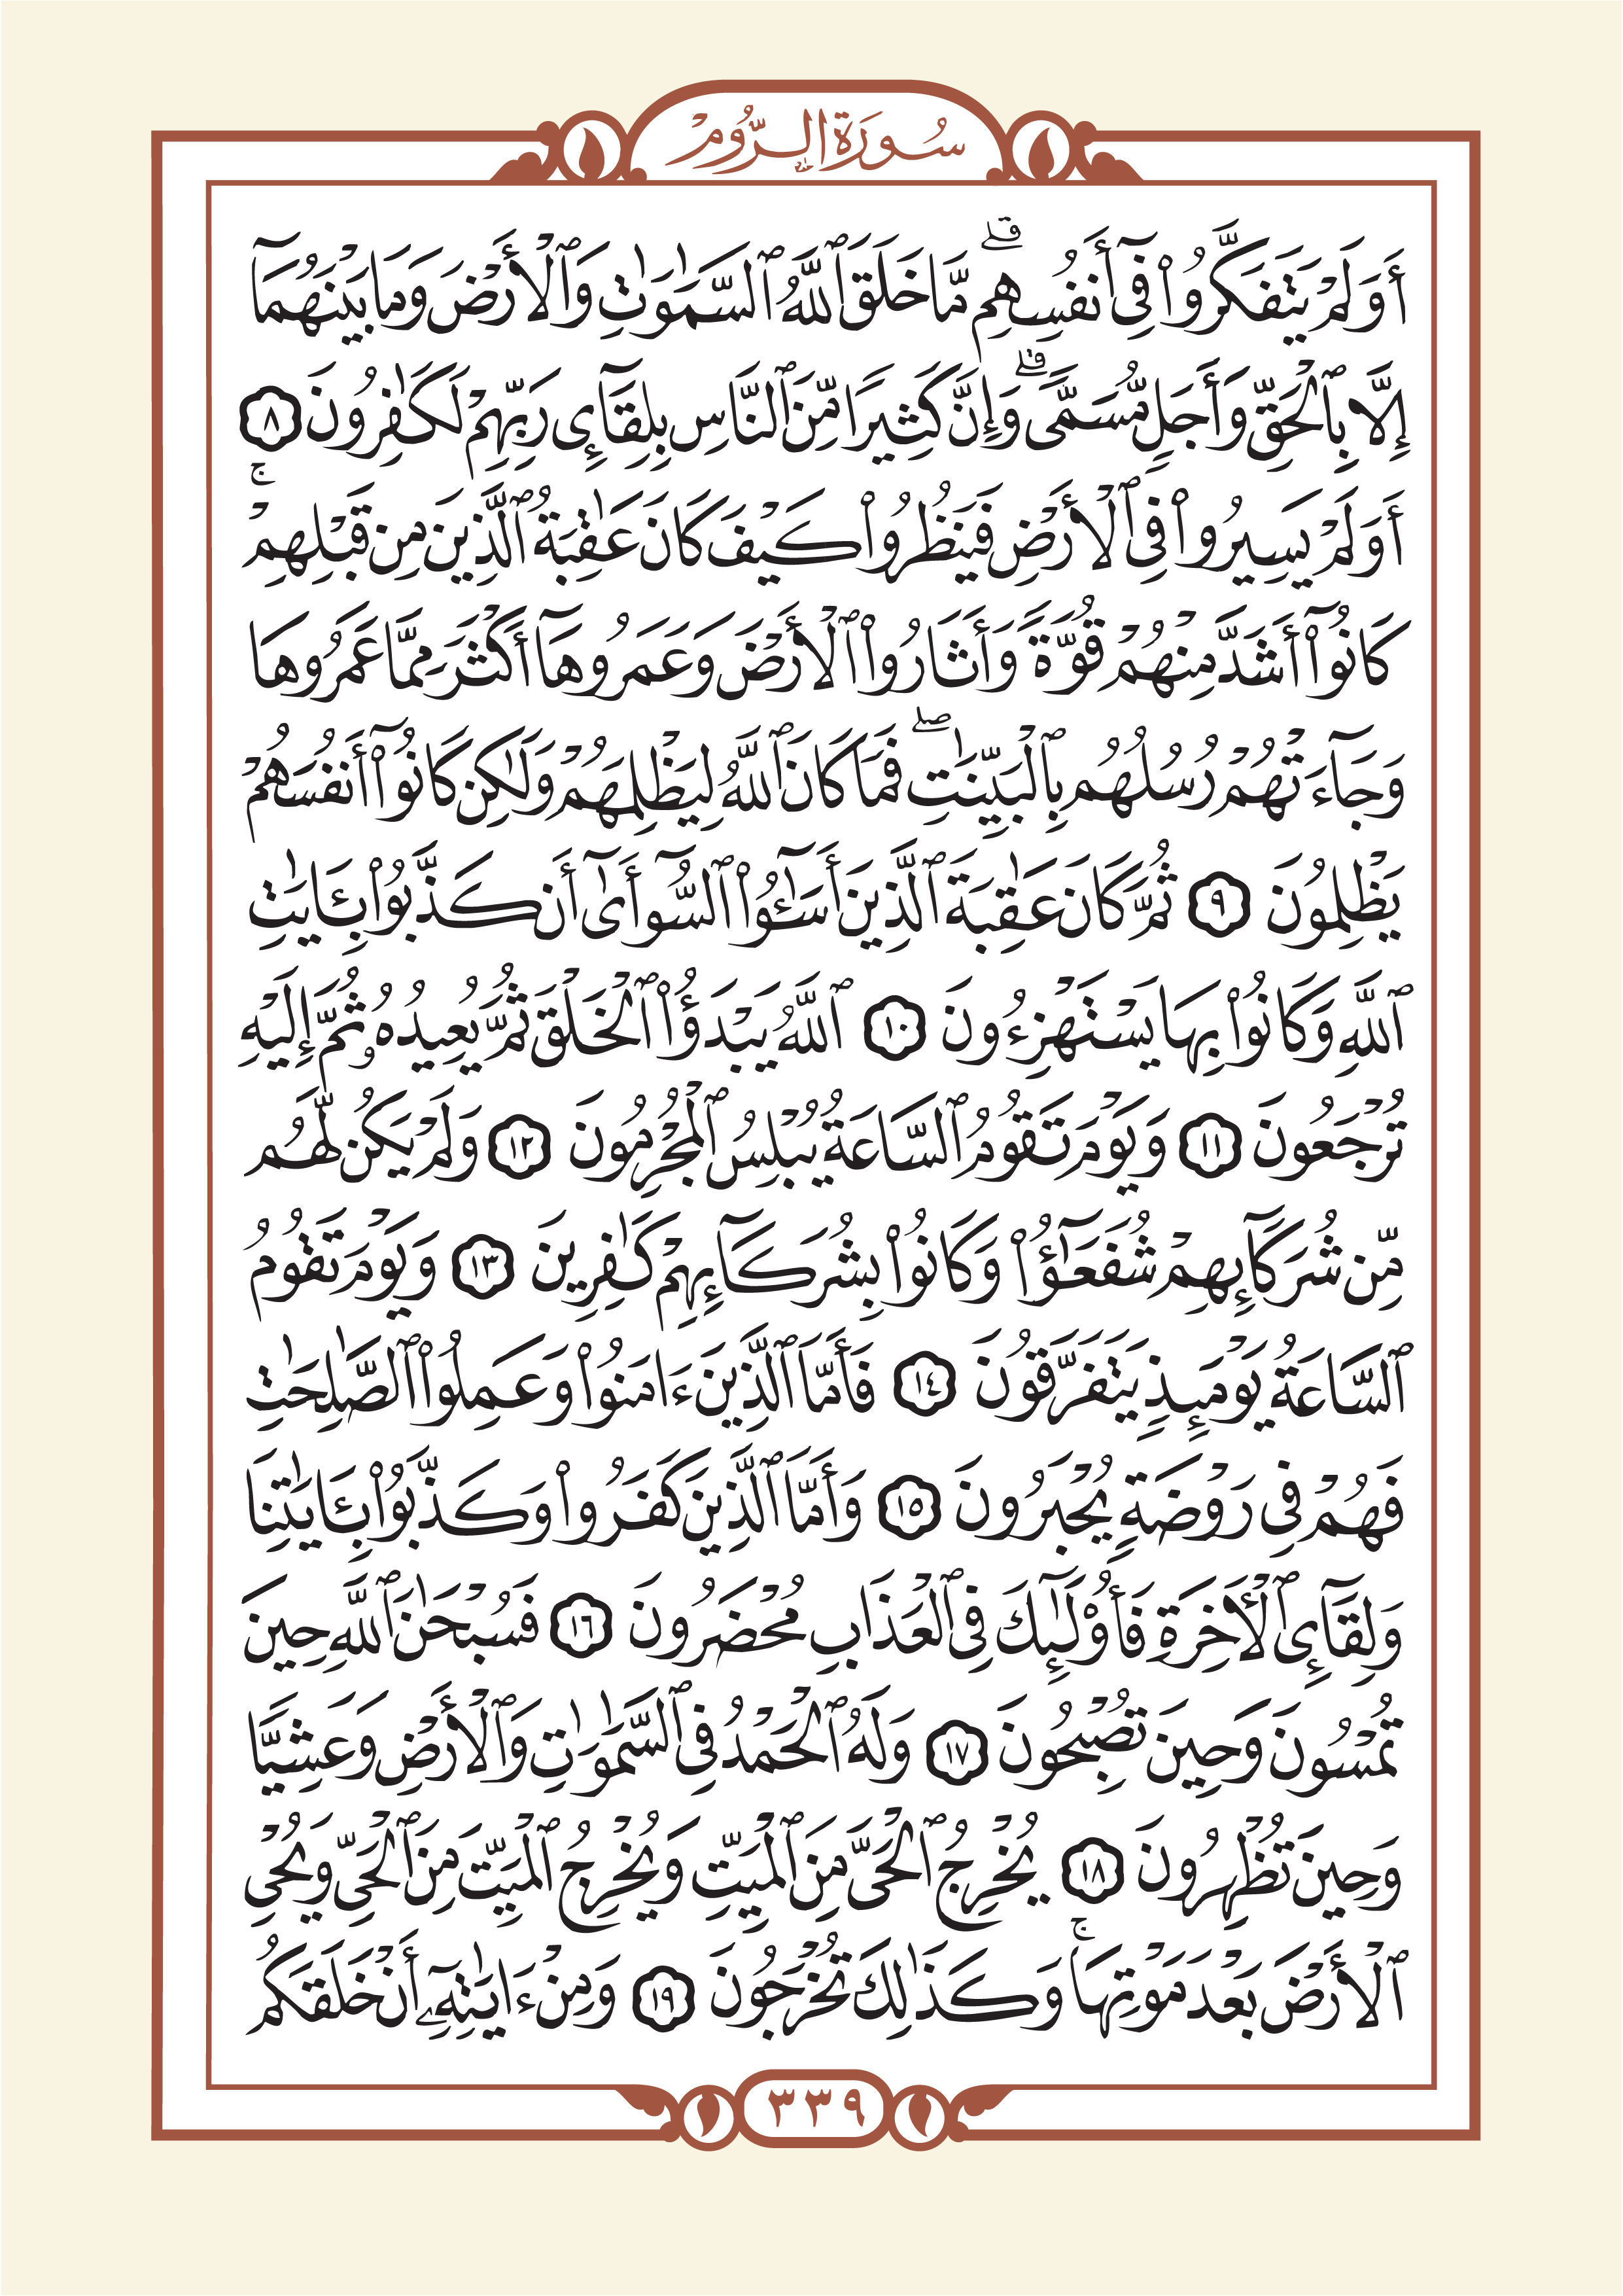 سُورَةُ الرُّومِ
أَوَلَمْ يَتَفَكَّرُوا۟ فِىٓ أَنفُسِهِم ۗ مَّا خَلَقَ ٱللَّهُ ٱلسَّمَٰوَٰتِ وَٱلْأَرْضَ وَمَا بَيْنَهُمَآ
إِلَّا بِٱلْحَقِّ وَأَجَلٍ مُّسَمًّى ۗ وَإِنَّ كَثِيرًا مِّنَ ٱلنَّاسِ بِلِقَآئِ رَبِّهِمْ لَكَٰفِرُونَ ٨
أَوَلَمْ يَسِيرُوا۟ فِى ٱلْأَرْضِ فَيَنظُرُوا۟ كَيْفَ كَانَ عَٰقِبَةُ ٱلَّذِينَ مِن قَبْلِهِمْ ۚ
كَانُوٓا۟ أَشَدَّ مِنْهُمْ قُوَّةً وَأَثَارُوا۟ ٱلْأَرْضَ وَعَمَرُوهَآ أَكْثَرَ مِمَّا عَمَرُوهَا
وَجَآءَتْهُمْ رُسُلُهُم بِٱلْبَيِّنَٰتِ ۖ فَمَا كَانَ ٱللَّهُ لِيَظْلِمَهُمْ وَلَٰكِن كَانُوٓا۟ أَنفُسَهُمْ
يَظْلِمُونَ ٩ ثُمَّ كَانَ عَٰقِبَةَ ٱلَّذِينَ أَسَٰٓـُٔوا۟ ٱلسُّوٓأَىٰٓ أَن كَذَّبُوا۟ بِـَٔايَٰتِ
ٱللَّهِ وَكَانُوا۟ بِهَا يَسْتَهْزِءُونَ ١٠ ٱللَّهُ يَبْدَؤُا۟ ٱلْخَلْقَ ثُمَّ يُعِيدُهُۥ ثُمَّ إِلَيْهِ
تُرْجَعُونَ ١١ وَيَوْمَ تَقُومُ ٱلسَّاعَةُ يُبْلِسُ ٱلْمُجْرِمُونَ ١٢ وَلَمْ يَكُن لَّهُم
مِّن شُرَكَآئِهِمْ شُفَعَٰٓؤُا۟ وَكَانُوا۟ بِشُرَكَآئِهِمْ كَٰفِرِينَ ١٣ وَيَوْمَ تَقُومُ
ٱلسَّاعَةُ يَوْمَئِذٍ يَتَفَرَّقُونَ ١٤ فَأَمَّا ٱلَّذِينَ ءَامَنُوا۟ وَعَمِلُوا۟ ٱلصَّٰلِحَٰتِ
فَهُمْ فِى رَوْضَةٍ يُحْبَرُونَ ١٥ وَأَمَّا ٱلَّذِينَ كَفَرُوا۟ وَكَذَّبُوا۟ بِـَٔايَٰتِنَا
وَلِقَآئِ ٱلْـَٔاخِرَةِ فَأُو۟لَٰٓئِكَ فِى ٱلْعَذَابِ مُحْضَرُونَ ١٦ فَسُبْحَٰنَ ٱللَّهِ حِينَ
تُمْسُونَ وَحِينَ تُصْبِحُونَ ١٧ وَلَهُ ٱلْحَمْدُ فِى ٱلسَّمَٰوَٰتِ وَٱلْأَرْضِ وَعَشِيًّا
وَحِينَ تُظْهِرُونَ ١٨ يُخْرِجُ ٱلْحَىَّ مِنَ ٱلْمَيِّتِ وَيُخْرِجُ ٱلْمَيِّتَ مِنَ ٱلْحَىِّ وَيُحْىِ
ٱلْأَرْضَ بَعْدَ مَوْتِهَا ۚ وَكَذَٰلِكَ تُخْرَجُونَ ١٩ وَمِنْ ءَايَٰتِهِۦٓ أَنْ خَلَقَكُم
٣٣٩